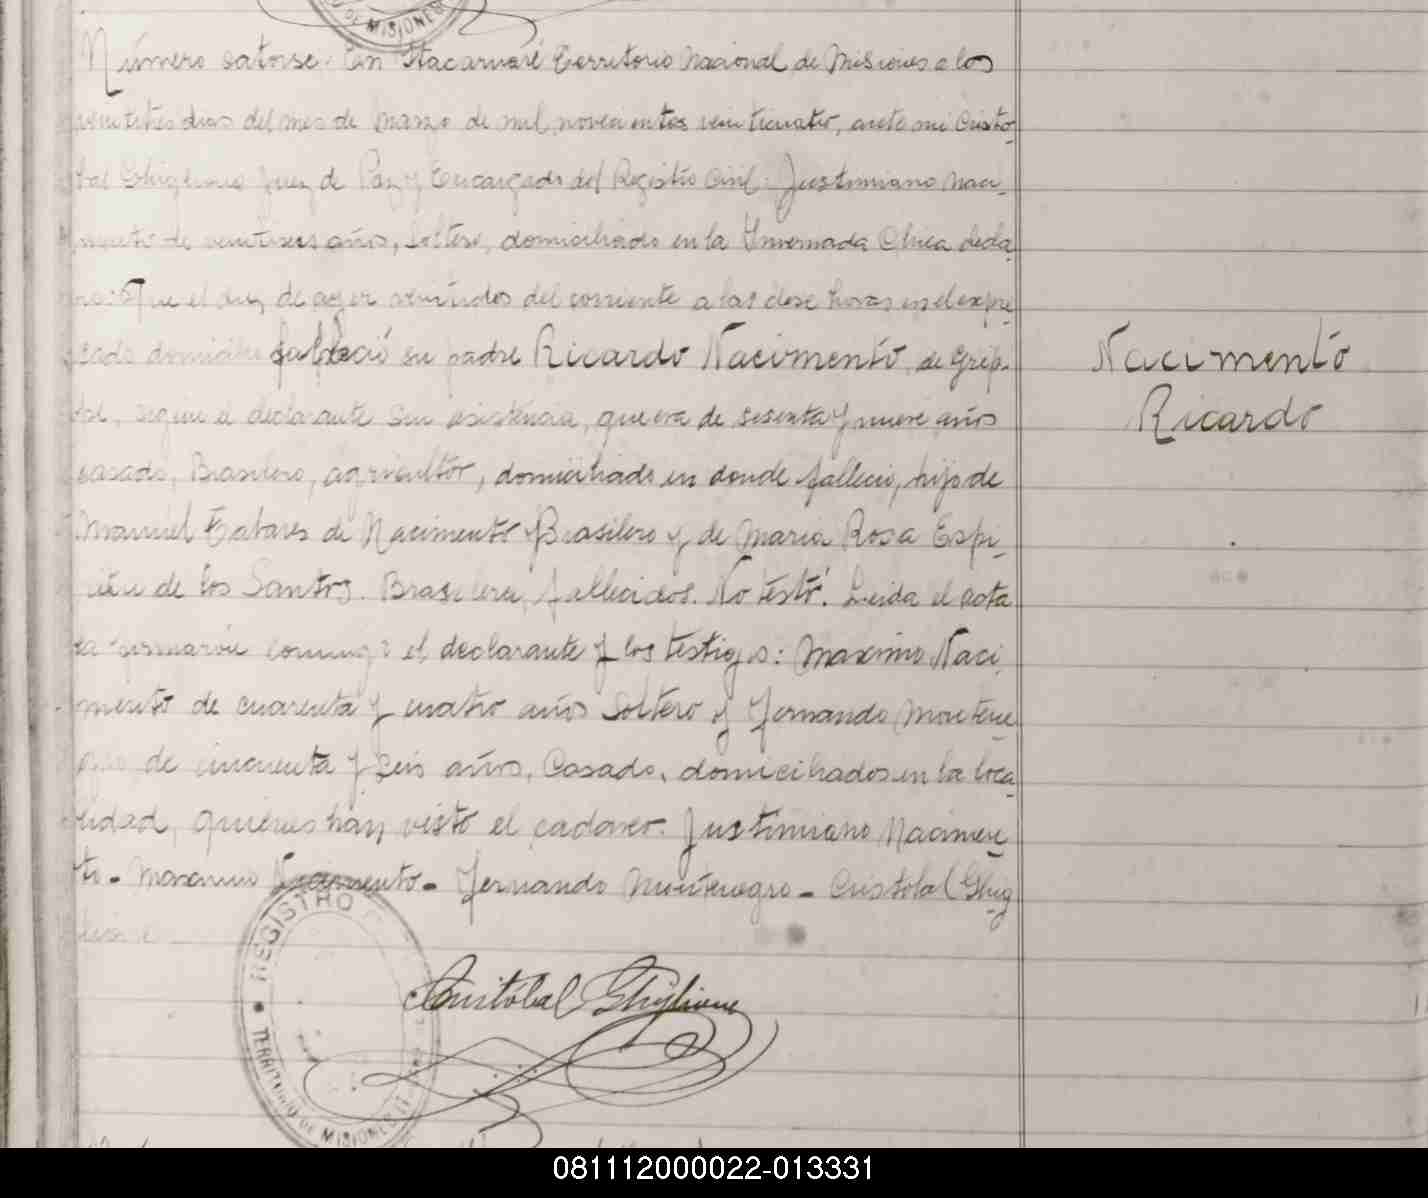 DE MISIONES
Número catorse. En Itacaruaré Territorio Nacional de Misiones a los
veintitrés dias del mes de Marzo de mil novecientos veinticuatro, ante mi Cristo-
bal Ghiglione Juez de Paz y Encargado del Registro Civil: Justimiano Naci-
miento de veintiseis años, soltero, domiciliado en la Invernada Chica decla-
ro: Que el dia de ayer veintidos del corriente a las dose horas en el expre-
sado domicilio falleció su padre Ricardo Nacimento, de Grip-
pal, según el declarante sin asistencia, que era de sesenta y nueve años
casado, Brasilero, agricultor, domiciliado en donde falleció, hijo de
Manuel Tabares de Nacimento Brasilero y de Maria Rosa Espi-
ritu de los Santos. Brasilera, fallecidos. No testó. Leida el acta
la firmaron conmigo el declarante y los testigos: Maximo Naci-
mento de cuarenta y cuatro años Soltero y Fernando Montene-
gro de cincuenta y seis años, Casado, domiciliados en la loca-
lidad, quienes han visto el cadaver. Justimiano Nacimen-
to - Maximo Nacimento - Fernando Montenegro - Cristobal Ghig-
lione
Nacimento
Ricardo
REGISTRO
TERRITORIO DE MISIONES
Cristóbal Ghiglione
081112000022-013331